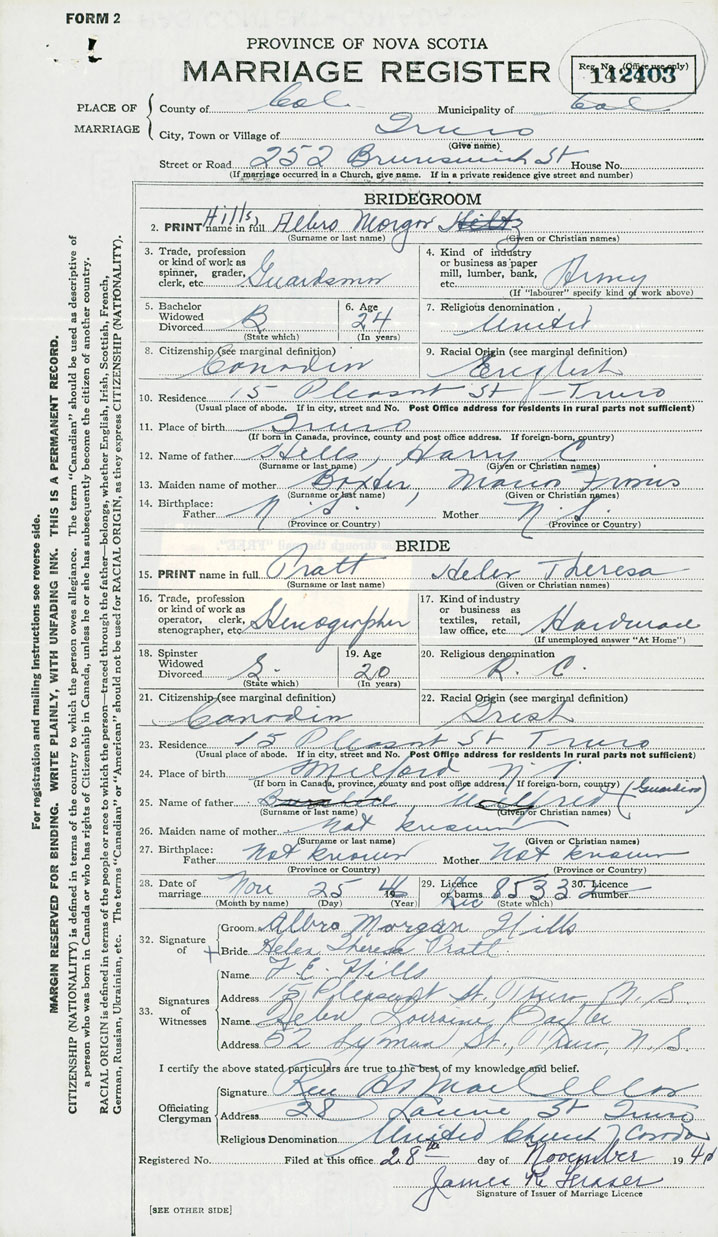 FORM 2
PROVINCE OF NOVA SCOTIA
MARRIAGE REGISTER
Reg. No. (Office use only)
142403
PLACE OF MARRIAGE
County of Col. Municipality of Col
City, Town or Village of Truro
(Give name)
Street or Road 252 Brunswick St House No.
(If marriage occurred in a Church, give name. If in a private residence give street and number)
BRIDEGROOM
2. PRINT name in full Hills, Albro Morgan Hiltz
(Surname or last name) (Given or Christian names)
3. Trade, profession or kind of work as spinner, grader, clerk, etc. Guardsman
4. Kind of industry or business as paper mill, lumber, bank, etc. Army
(If "labourer" specify kind of work above)
5. Bachelor Widowed Divorced B (State which)
6. Age 24 (In years)
7. Religious denomination United
8. Citizenship (see marginal definition) Canadin
9. Racial Origin (see marginal definition) English
10. Residence 15 Pleasant St - Truro
(Usual place of abode. If in city, street and No. Post Office address for residents in rural parts not sufficient)
11. Place of birth Truro
(If born in Canada, province, county and post office address. If foreign-born, country)
12. Name of father Hills, Harry C
(Surname or last name) (Given or Christian names)
13. Maiden name of mother Baxter,
(Surname or last name) (Given or Christian names)
14. Birthplace: Father N. S. Mother N. S.
(Province or Country) (Province or Country)
BRIDE
15. PRINT name in full Pratt Helen Theresa
(Surname or last name) (Given or Christian names)
16. Trade, profession or kind of work as operator, clerk, stenographer, etc. Stenographer
17. Kind of industry or business as textiles, retail, law office, etc. Hardware
(If unemployed answer "At Home")
18. Spinster Widowed Divorced S. (State which)
19. Age 20 (In years)
20. Religious denomination R. C.
21. Citizenship (see marginal definition) Canadin
22. Racial Origin (see marginal definition) Irish
23. Residence 15 Pleasant St Truro
(Usual place of abode. If in city, street and No. Post Office address for residents in rural parts not sufficient)
24. Place of birth Milford N. S.
(If born in Canada, province, county and post office address. If foreign-born, country)
25. Name of father (Guardian)
(Surname or last name) (Given or Christian names)
26. Maiden name of mother Not known
(Surname or last name) (Given or Christian names)
27. Birthplace: Father Not known Mother Not known
(Province or Country) (Province or Country)
28. Date of marriage Nov 25 1946
(Month by name) (Day) (Year)
29. Licence or banns Lic (State which) 30. Licence number 85332
32. Signature of
Groom Albro Morgan Hills
Bride Helen Theresa Pratt
33. Signatures of Witnesses
Name F. E. Hills
Address 15 Pleasant St. Truro, N. S.
Name Helen Lorraine
Address 52 Lyman St., Truro, N. S.
I certify the above stated particulars are true to the best of my knowledge and belief.
Officiating Clergyman
Signature Rev
Address 28 St Truro
Religious Denomination United Church
Registered No. Filed at this office 28th day of November 194
James K Fraser
Signature of Issuer of Marriage Licence
[SEE OTHER SIDE]
For registration and mailing instructions see reverse side.
MARGIN RESERVED FOR BINDING. WRITE PLAINLY, WITH UNFADING INK. THIS IS A PERMANENT RECORD.
CITIZENSHIP (NATIONALITY) is defined in terms of the country to which the person owes allegiance. The term "Canadian" should be used as descriptive of
a person who was born in Canada or who has rights of Citizenship in Canada, unless he or she has subsequently become the citizen of another country.
RACIAL ORIGIN is defined in terms of the people or race to which the person—traced through the father—belongs, whether English, Irish, Scottish, French,
German, Russian, Ukrainian, etc. The terms "Canadian" or "American" should not be used for RACIAL ORIGIN, as they express CITIZENSHIP (NATIONALITY).